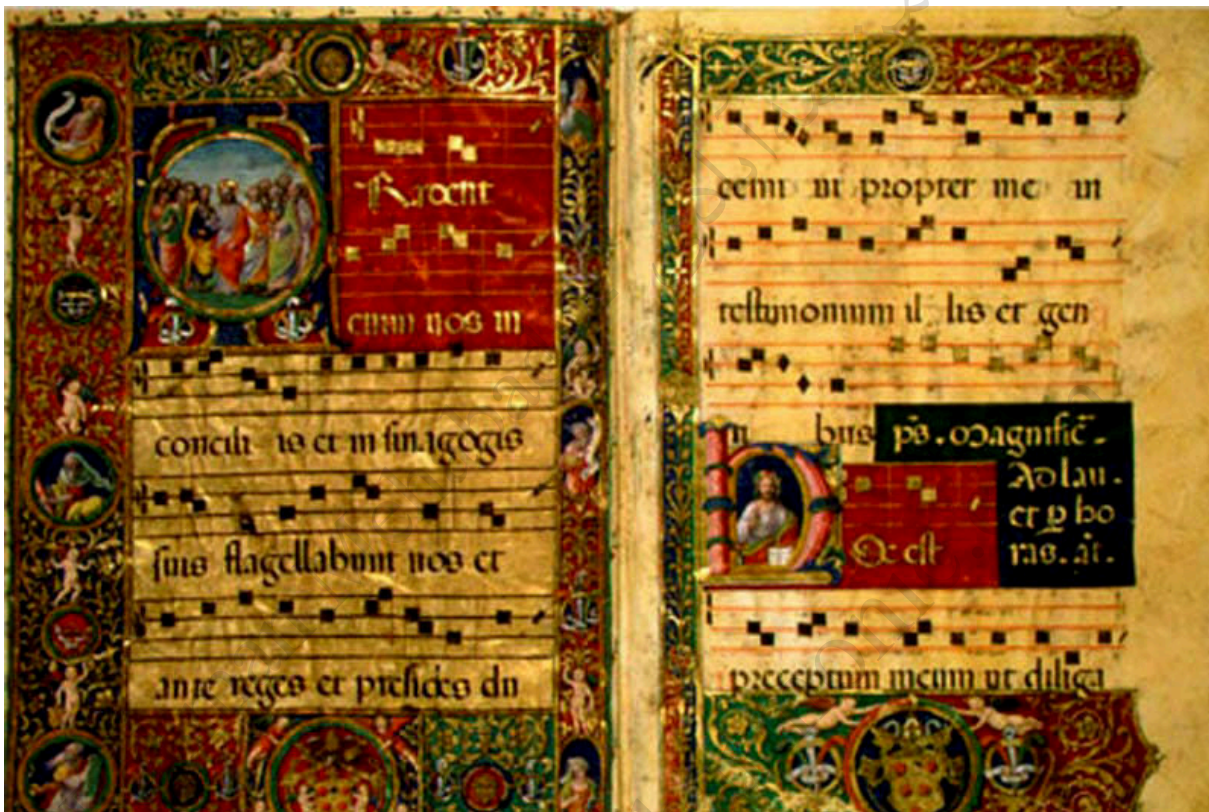 Radent
enim uos in
concili is et in sinagogis
suis flagellabunt uos et
ante reges et presides du
cemini ut propter me in
testimonium il lis et gen
bus ps. Magnific̄.
Ad lau.
et ꝑ ho
H Oc est ras. an̄.
preceptum meum ut diliga